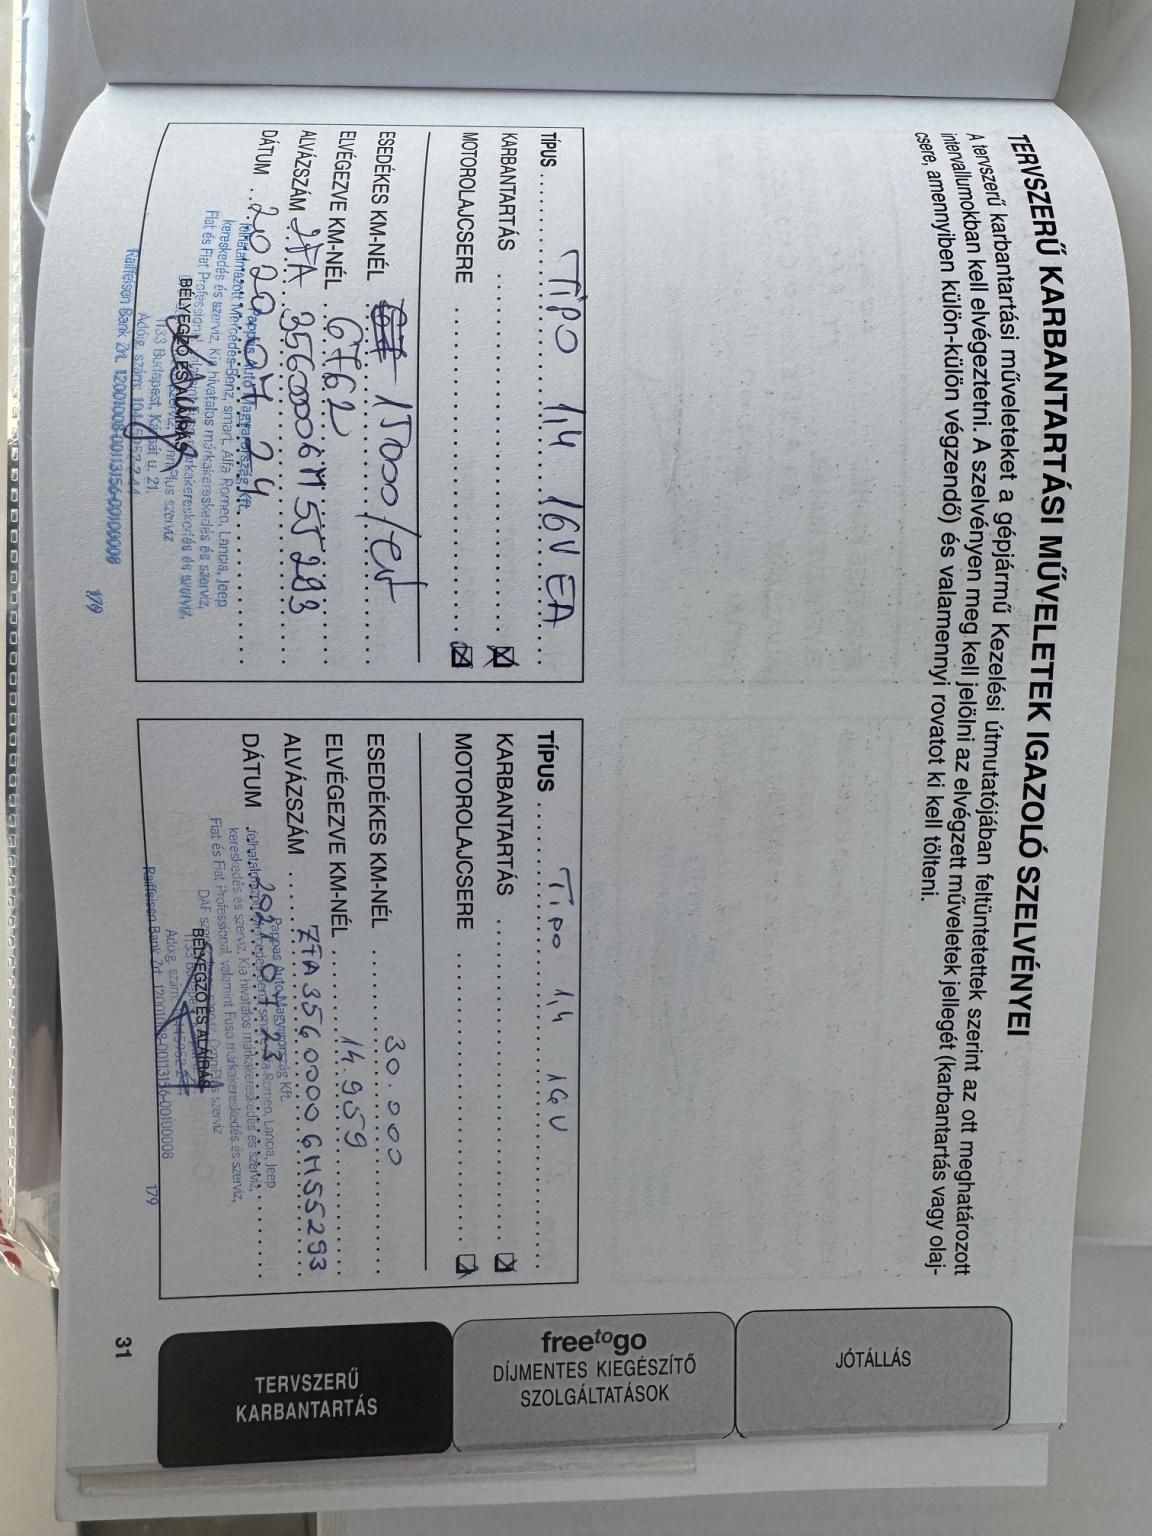 TERVSZERŰ KARBANTARTÁSI MŰVELETEK IGAZOLÓ SZELVÉNYEI
A tervszerű karbantartási műveleteket a gépjármű Kezelési útmutatójában feltüntetettek szerint az ott meghatározott
intervallumokban kell elvégeztetni. A szelvényen meg kell jelölni az elvégzett műveletek jellegét (karbantartás vagy olaj-
csere, amennyiben külön-külön végzendő) és valamennyi rovatot ki kell tölteni.
TÍPUS Tipo 1,4 16V EA
KARBANTARTÁS
MOTOROLAJCSERE
ESEDÉKES KM-NÉL 15000/év
ELVÉGEZVE KM-NÉL 6762
ALVÁZSZÁM ZFA3560006M55293
DÁTUM 2020 07 24
Pappas Auto Magyarország Kft.
felhatalmazott Mercedes-Benz, smart, Alfa Romeo, Lancia, Jeep
kereskedés és szerviz, Kia hivatalos márkakereskedés és szerviz,
Fiat és Fiat Professional, márkakereskedés és szerviz,
szerviz, OmniPlus szerviz
BÉLYEGZŐ ÉS ALÁÍRÁS
1133 Budapest, Kárpát u. 21.
Adóig. szám:
Raiffeisen Bank Zrt. 12001008-00113156-00100008
179
TÍPUS Tipo 1,4 16V
KARBANTARTÁS
MOTOROLAJCSERE
ESEDÉKES KM-NÉL 30.000
ELVÉGEZVE KM-NÉL 14.959
ALVÁZSZÁM ZFA3560006M55293
DÁTUM 2021 07 23
Pappas Auto Magyarország Kft.
felhatalmazott Mercedes-Benz, smart, Alfa Romeo, Lancia, Jeep
kereskedés és szerviz, Kia hivatalos márkakereskedés és szerviz,
Fiat és Fiat Professional, valamint Fuso márkakereskedés és szerviz,
DAF szerviz, OmniPlus szerviz
BÉLYEGZŐ ÉS ALÁÍRÁS
1133
Adóig. szám:
Raiffeisen Bank Zrt. 12001008-00113156-00100008
179
JÓTÁLLÁS
freetogo
DÍJMENTES KIEGÉSZÍTŐ
SZOLGÁLTATÁSOK
TERVSZERŰ
KARBANTARTÁS
31